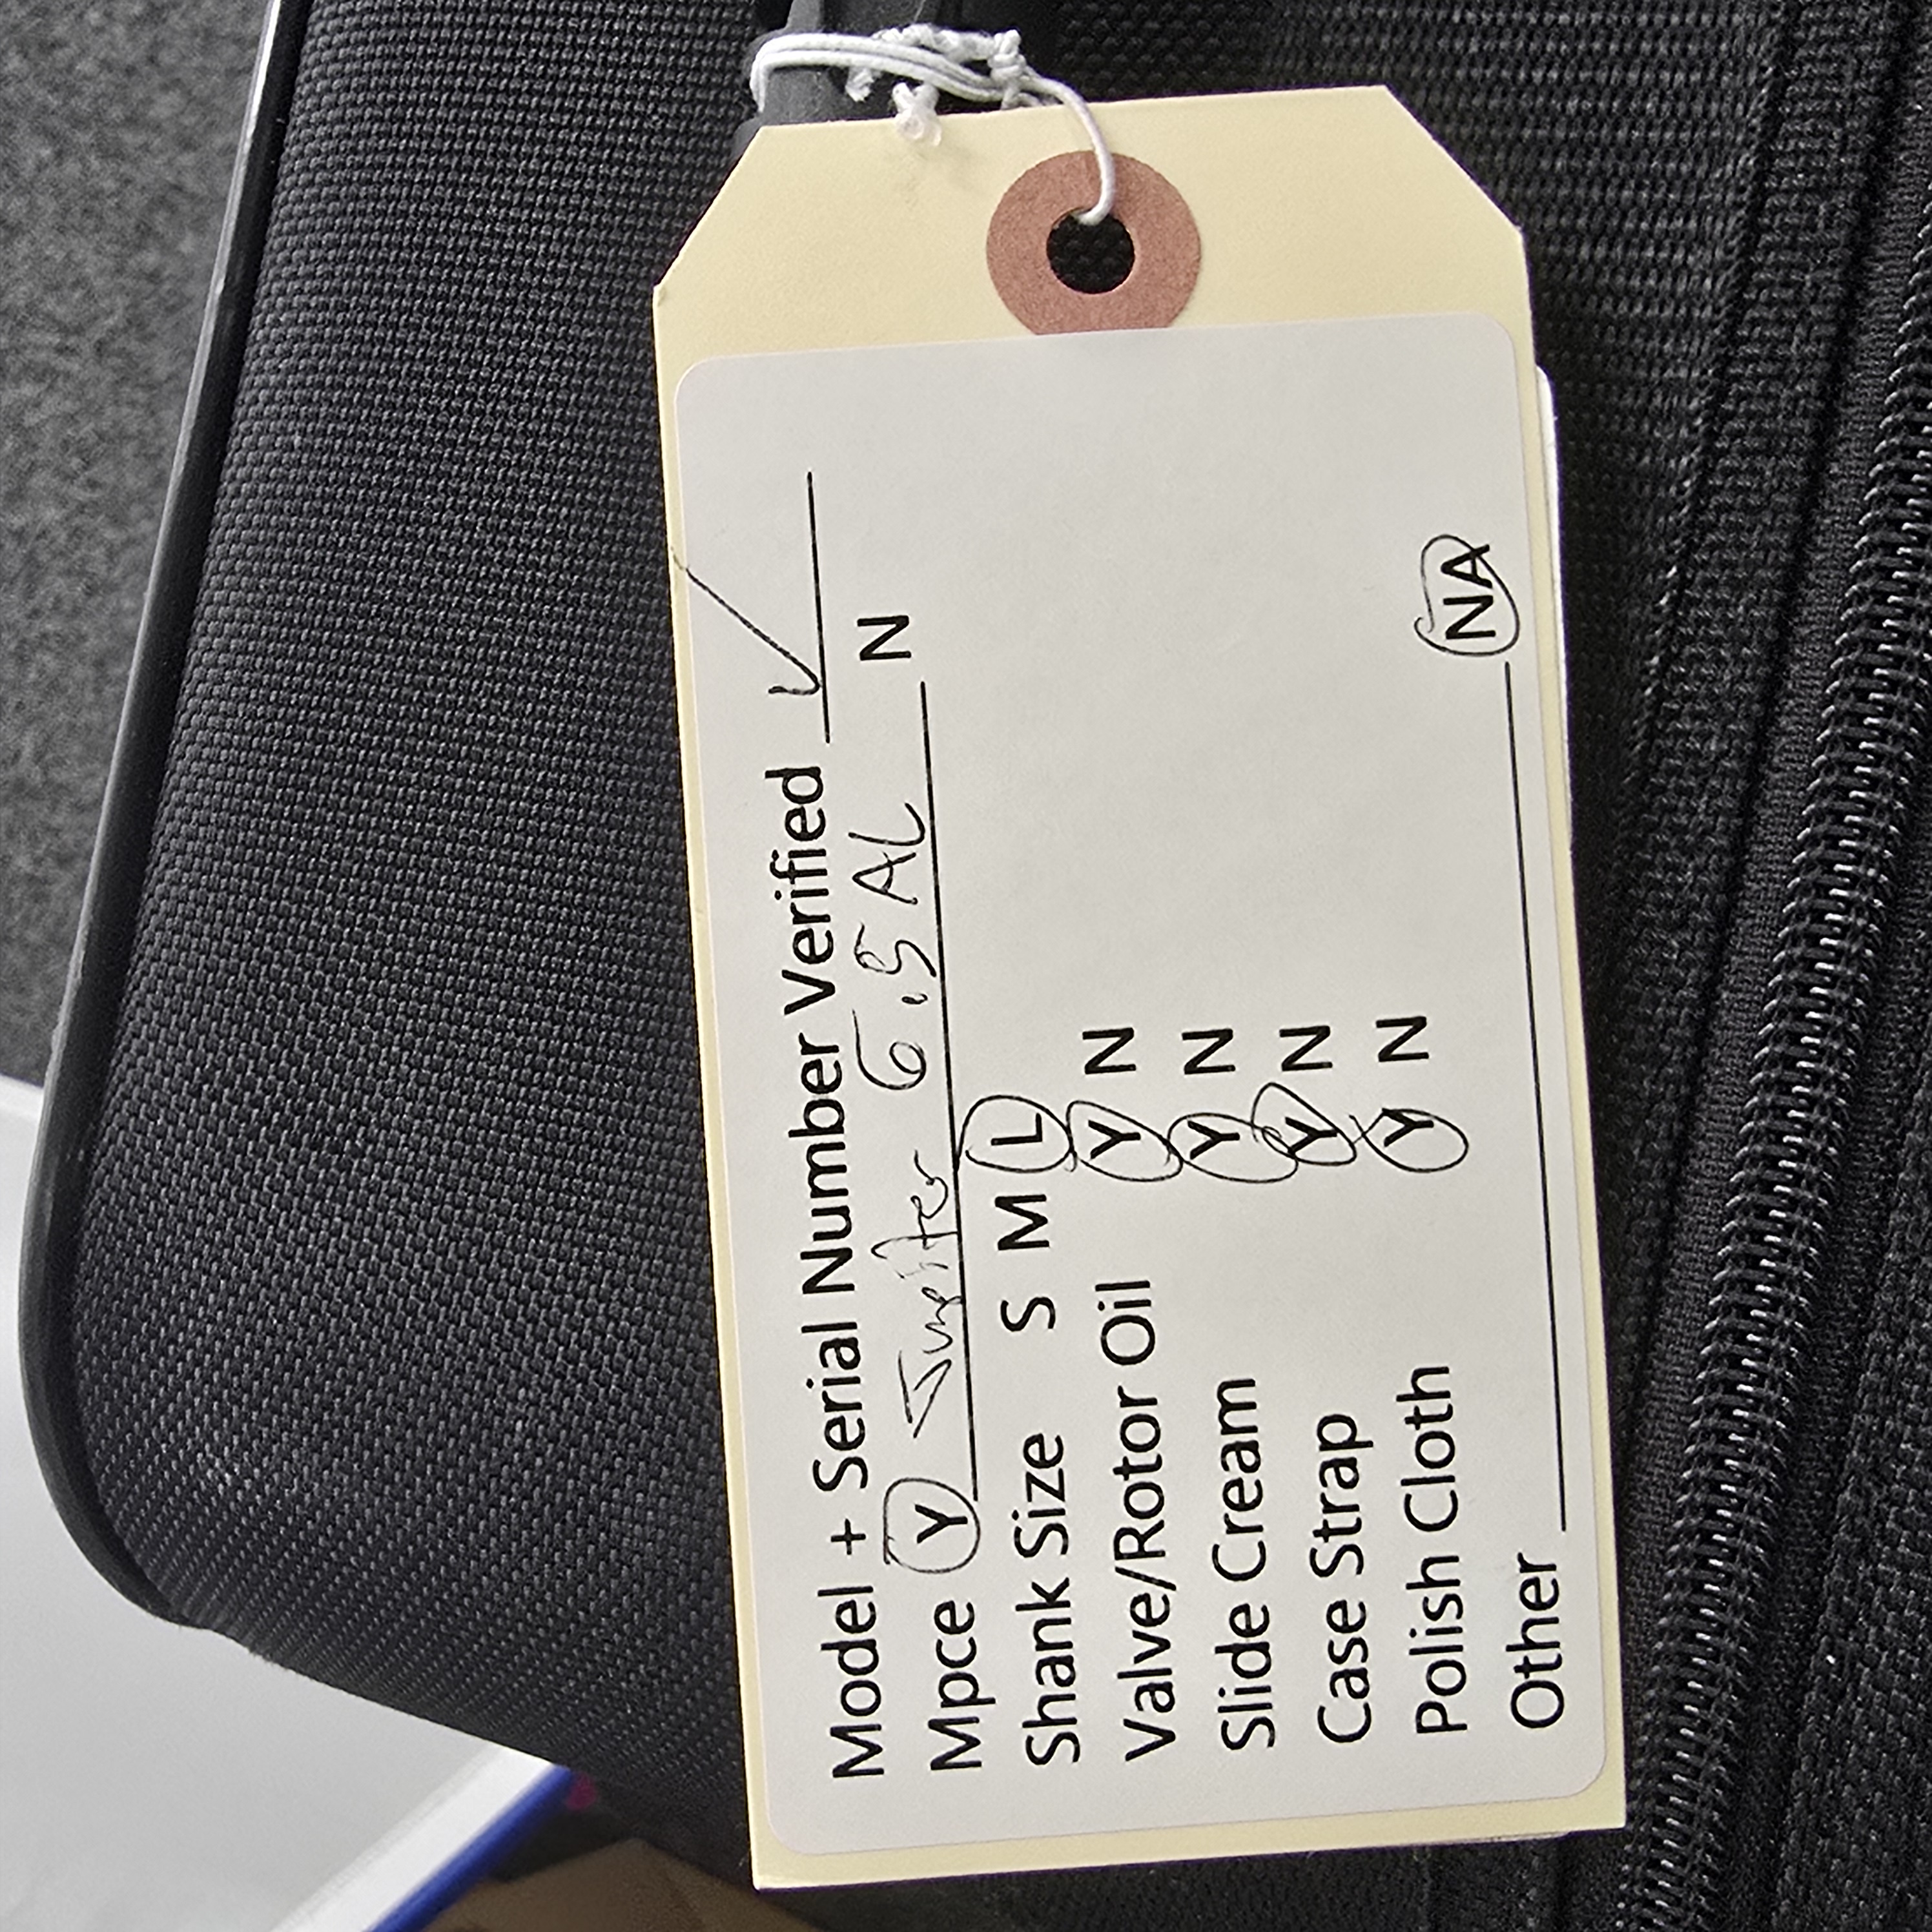 Model + Serial Number Verified ✓
Mpce Y Jupiter 6.5 AL N
Shank Size S M L
Valve/Rotor Oil Y N
Slide Cream Y N
Case Strap Y N
Polish Cloth Y N
Other NA